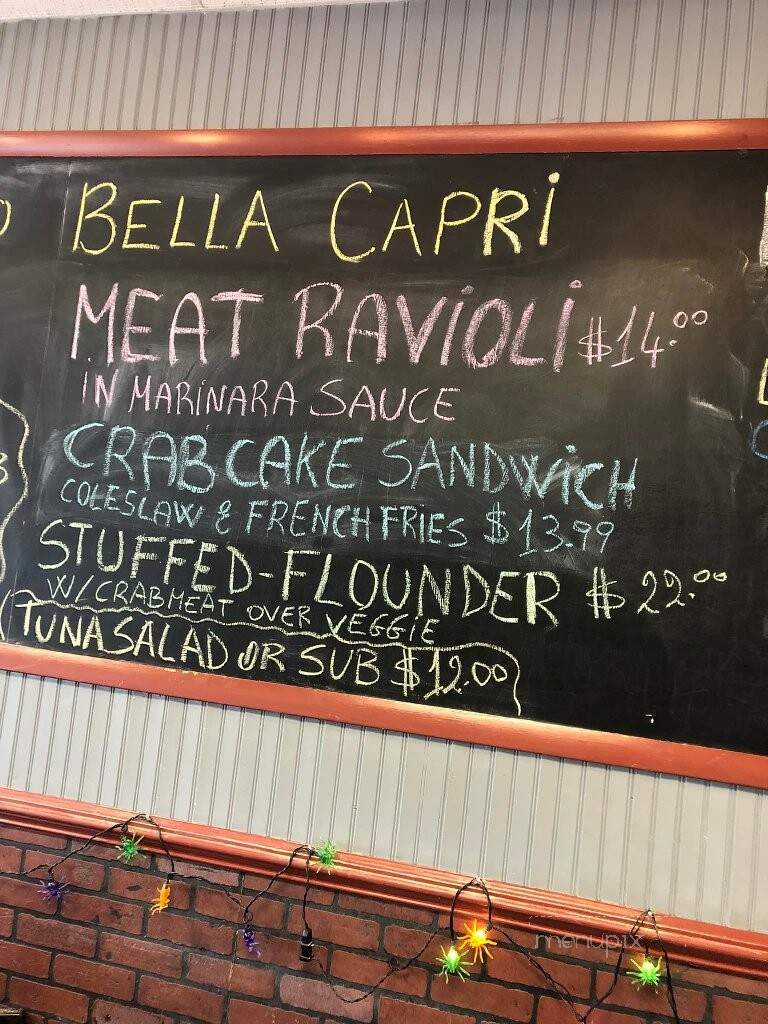 BELLA CAPRI
MEAT RAVIOLI $14.00
IN MARINARA SAUCE
CRABCAKE SANDWICH
COLESLAW & FRENCH FRIES $13.99
STUFFED-FLOUNDER $22.00
W/CRABMEAT OVER VEGGIE
TUNA SALAD OR SUB $12.00
menupix